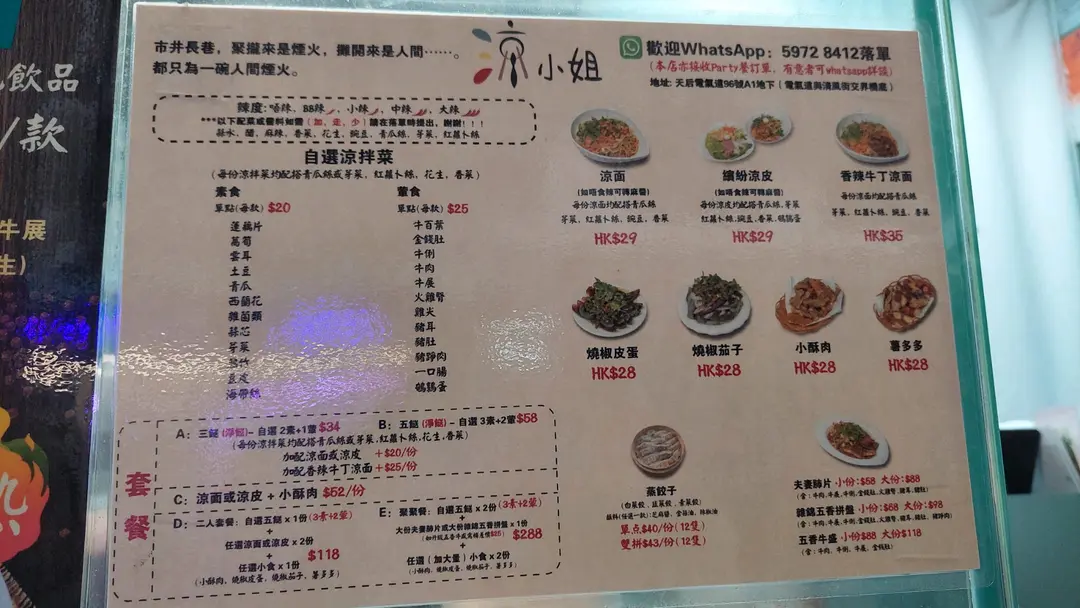 飲品
/款
牛展
生)
市井長巷，聚攏來是煙火，攤開來是人間……。
都只為一碗人間煙火。
涼小姐
歡迎WhatsApp：5972 8412落單
(本店亦接收Party餐訂單，有意者可whatsapp詳談)
地址：天后電氣道96號A1地下（電氣道與清風街交界橋底）
辣度：唔辣、BB辣、小辣、中辣、大辣
***以下配菜或醬料如需（加、走、少）請在落單時提出，謝謝！！！
蒜水、醋、麻辣、香菜、花生、豌豆、青瓜絲、芽菜、紅蘿卜絲
自選涼拌菜
(每份涼拌菜均配搭青瓜絲或芽菜，紅蘿卜絲，花生，香菜)
素食
單點(每款) $20
蓮藕片
萵筍
雲耳
土豆
青瓜
西蘭花
雜菌類
蒜芯
芽菜
腐竹
豆皮
海帶絲
葷食
單點(每款) $25
牛百葉
金錢肚
牛脷
牛肉
牛展
火雞腎
雞尖
豬耳
豬肚
豬踭肉
一口腸
鵪鶉蛋
涼面
(如唔食辣可轉麻醬)
每份涼面均配搭青瓜絲
芽菜、紅蘿卜絲、豌豆、香菜
HK$29
繽紛涼皮
(如唔食辣可轉麻醬)
每份涼皮均配搭青瓜絲
芽菜、紅蘿卜絲、豌豆、香菜、鵪鶉蛋
HK$29
香辣牛丁涼面
每份涼面均配搭青瓜絲
芽菜、紅蘿卜絲、豌豆、香菜
HK$35
燒椒皮蛋
HK$28
燒椒茄子
HK$28
小酥肉
HK$28
薯多多
HK$28
套餐
A：三餸(淨餸)– 自選 2素+1葷 $34
(每份涼拌菜均配搭青瓜絲或芽菜，紅蘿卜絲，花生，香菜)
加配涼面或涼皮 +$20/份
加配香辣牛丁涼面 +$25/份
B：五餸(淨餸)– 自選 3素+2葷 $58
C：涼面或涼皮 + 小酥肉 $52/份
D：二人套餐：自選五餸 x 1份 (3素+2葷)
+
任選涼面或涼皮 x 2份
+
任選小食 x 1份
$118
(小酥肉、燒椒皮蛋、燒椒茄子、薯多多)
E：聚聚餐：自選五餸 x 2份 (3素+2葷)
+
大份夫妻肺片或大份雜錦五香拼盤 x 1份
$288
+
任選（加大量）小食 x 2份
(小酥肉、燒椒皮蛋、燒椒茄子、薯多多)
蒸餃子
(白菜餃、韭菜餃、素菜餃)
單点$40/份(12隻)
雙拼$43/份(12隻)
夫妻肺片 小份:$58 大份:$88
雜錦五香拼盤 小份:$68 大份:$98
五香牛盛 小份$88 大份$118
(含：牛肉、牛脷、牛展、金錢肚)